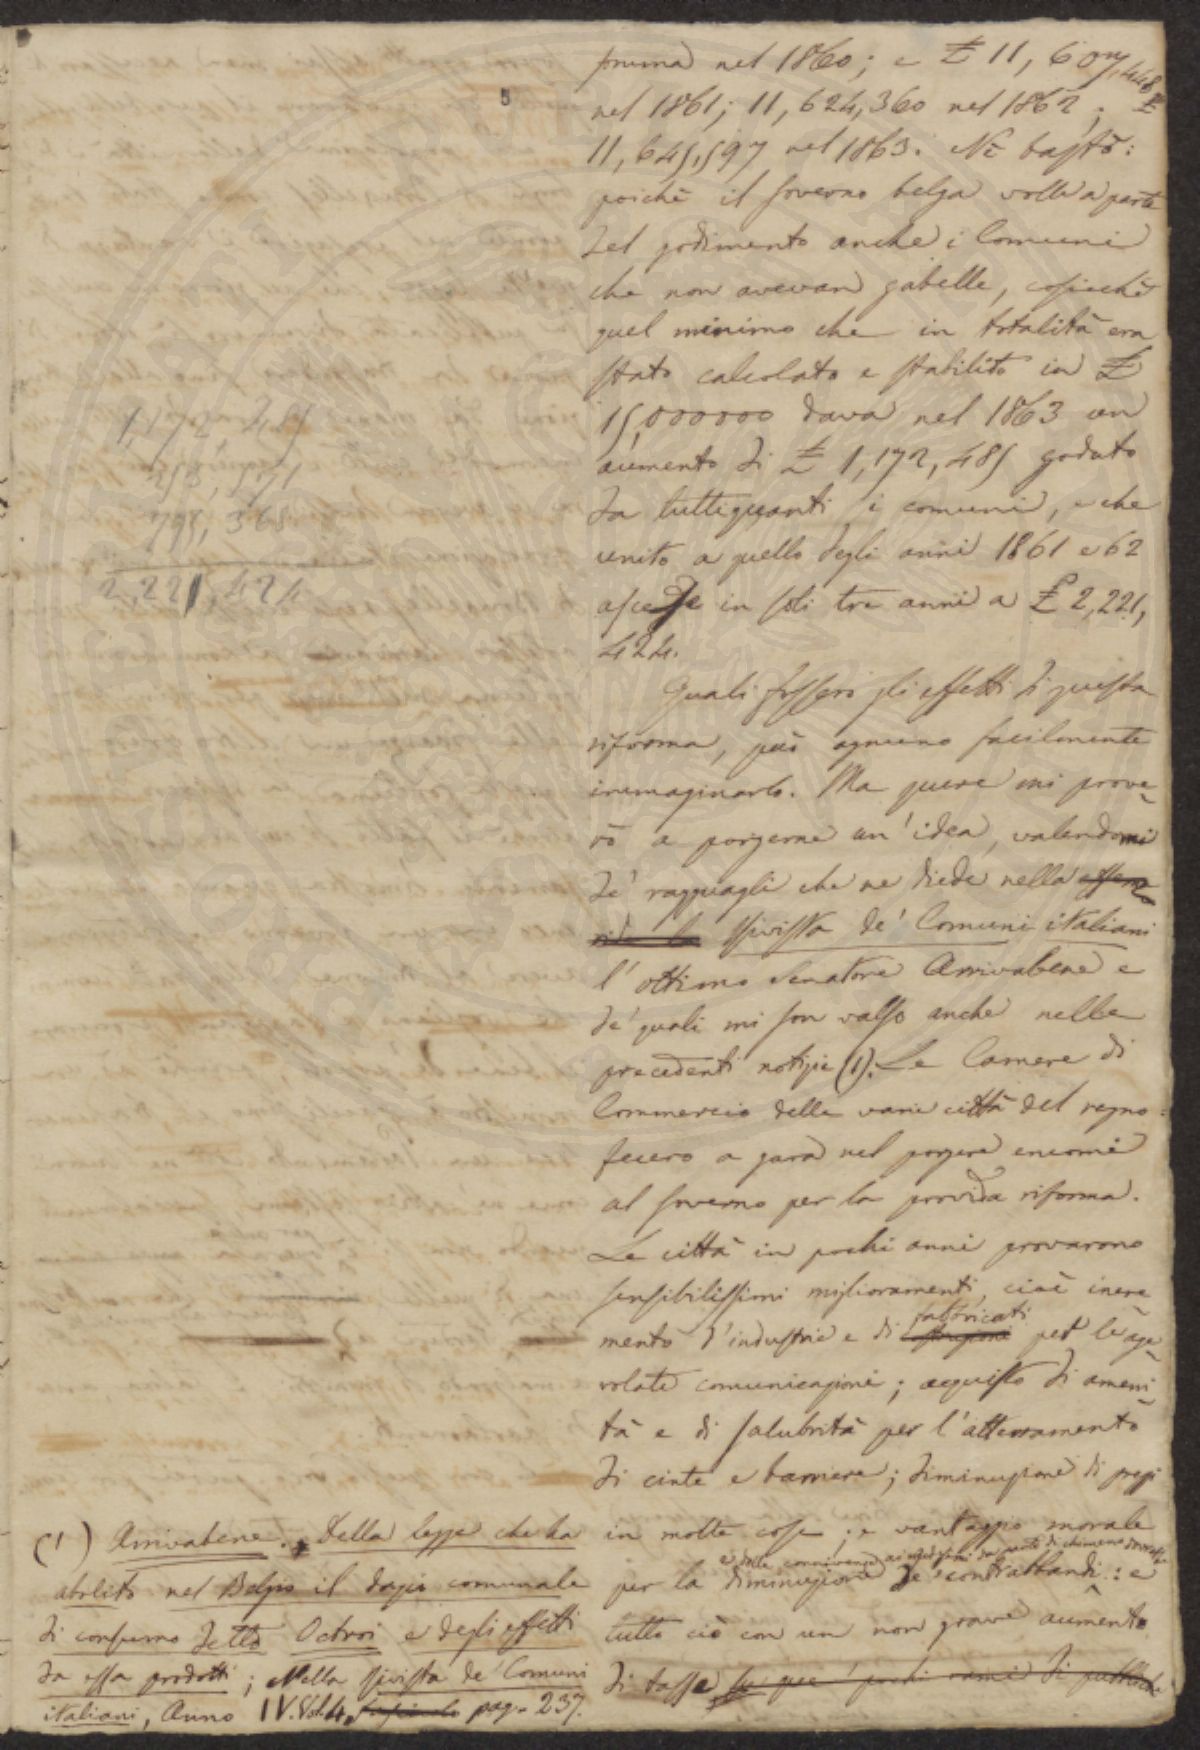 prima nel 1860; e £ 11,607,448
nel 1861; 11,624,360 nel 1862; £
11,645,597 nel 1863. Nè bastò:
poichè il Governo belga volle a parte
del godimento anche i Comuni
che non avevan gabelle, cosicchè
quel minimo che in totalità era
stato calcolato e stabilito in £
15,000000 dava nel 1863 un
aumento di £ 1,172,485 goduto
da tuttiquanti i comuni, e che
unito a quello degli anni 1861 e 62
ascese in soli tre anni a £ 2,221,
424.
1,172,485
253,571
795,368
2,221,424
Quali fossero gli effetti di questa
riforma, può ognuno facilmente
immaginarlo. Ma pure mi prove-
rò a porgerne un'idea, valendomi
de' ragguagli che ne diede nella
Rivista de' Comuni italiani
l'ottimo Senatore Arrivabene e
de' quali mi son valso anche nelle
precedenti notizie (1). Le Camere di
Commercio delle varie città del regno
fecero a gara nel porgere encomi
al Governo per la provvida riforma.
Le città in pochi anni provarono
sensibilissimi miglioramenti, cioè incre-
mento d'industrie e di fabbricati per le age-
volate comunicazioni; acquisto di ameni-
tà e di salubrità per l'atterramento
di cinte e barriere; diminuzione di prezzi
in molte cose; e vantaggio morale
per la diminuzione de' contrabbandi: e
tutto ciò con un non grave aumento
di tasse
(1) Arrivabene. Della legge che ha
abolito nel Belgio il dazio comunale
di consumo detto Octroi e degli effetti
da essa prodotti; Nella Rivista de' Comuni
italiani, Anno IV. Vol. 4, pag. 237.